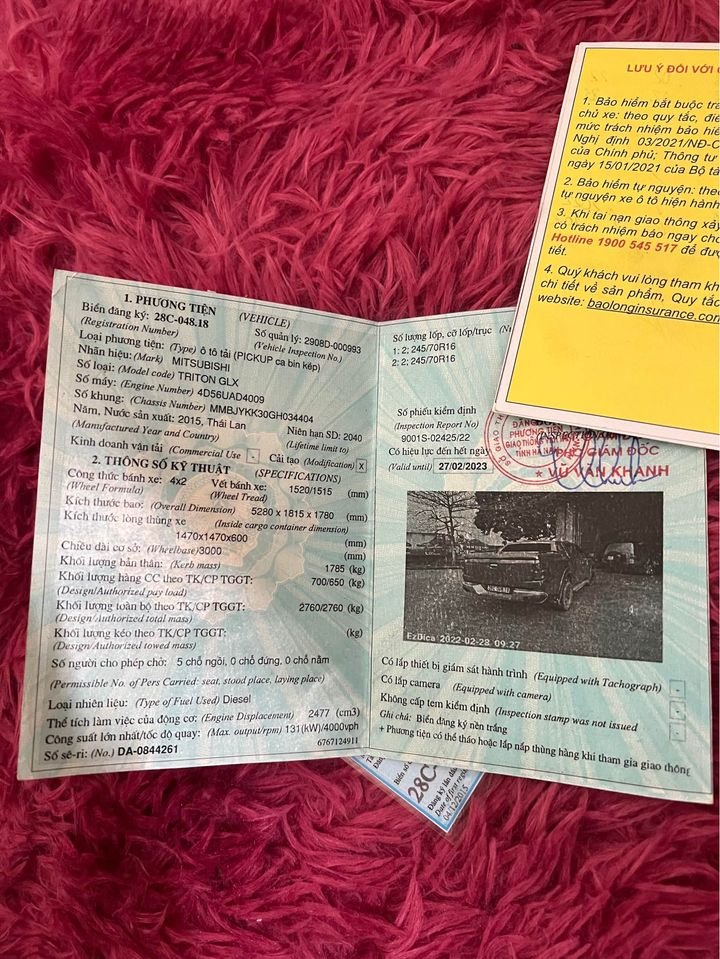 1. PHƯƠNG TIỆN (VEHICLE)
Biển đăng ký: 28C-048.18 Số quản lý: 2908D-000993
(Registration Number) (Vehicle Inspection No.)
Loại phương tiện: (Type) ô tô tải (PICKUP ca bin kép)
Nhãn hiệu: (Mark) MITSUBISHI
Số loại: (Model code) TRITON GLX
Số máy: (Engine Number) 4D56UAD4009
Số khung: (Chassis Number) MMBJYKK30GH034404
Năm, Nước sản xuất: 2015, Thái Lan Niên hạn SD: 2040
(Manufactured Year and Country) (Lifetime limit to)
Kinh doanh vận tải (Commercial Use - Cải tạo (Modification) X
2. THÔNG SỐ KỸ THUẬT (SPECIFICATIONS)
Công thức bánh xe: 4x2 Vết bánh xe: 1520/1515 (mm)
(Wheel Formula) (Wheel Tread)
Kích thước bao: (Overall Dimension) 5280 x 1815 x 1780 (mm)
Kích thước lòng thùng xe (Inside cargo container dimension)
1470x1470x600 (mm)
Chiều dài cơ sở: (Wheelbase)3000 (mm)
Khối lượng bản thân: (Kerb mass) 1785 (kg)
Khối lượng hàng CC theo TK/CP TGGT: 700/650 (kg)
(Design/Authorized pay load)
Khối lượng toàn bộ theo TK/CP TGGT: 2760/2760 (kg)
(Design/Authorized total mass)
Khối lượng kéo theo TK/CP TGGT: (kg)
(Design/Authorized towed mass)
Số người cho phép chở: 5 chỗ ngồi, 0 chỗ đứng, 0 chỗ nằm
(Permissible No. of Pers Carried: seat, stood place, laying place)
Loại nhiên liệu: (Type of Fuel Used) Diesel
Thể tích làm việc của động cơ: (Engine Displacement) 2477 (cm3)
Công suất lớn nhất/tốc độ quay: (Max. output/rpm) 131(kW)/4000vph
Số sê-ri: (No.) DA-0844261 6767124911
Số lượng lốp, cỡ lốp/trục
1: 2; 245/70R16
2: 2; 245/70R16
Số phiếu kiểm định
(Inspection Report No)
9001S-02425/22
Có hiệu lực đến hết ngày
(Valid until) 27/02/2023
PHÓ GIÁM ĐỐC
VŨ VĂN KHANH
EzDica 2022-02-28 09:27
Có lắp thiết bị giám sát hành trình (Equipped with Tachograph) -
Có lắp camera (Equipped with camera) -
Không cấp tem kiểm định (Inspection stamp was not issued -
Ghi chú: Biển đăng ký nền trắng
+ Phương tiện có thể tháo hoặc lắp nắp thùng hàng khi tham gia giao thông
LƯU Ý ĐỐI VỚI
1. Bảo hiểm bắt buộc
chủ xe: theo quy tắc,
mức trách nhiệm bảo
Nghị định 03/2021/NĐ-C
của Chính phủ; Thông tư
ngày 15/01/2021 của Bộ
2. Bảo hiểm tự nguyện: theo
tự nguyện xe ô tô hiện hành
3. Khi tai nạn giao thông xảy
có trách nhiệm báo ngay cho
Hotline 1900 545 517 để
tiết.
4. Quý khách vui lòng tham
chi tiết về sản phẩm, Quy tắc
website: baolonginsurance.com
28C-
Đăng ký lần đầu
Date of first
04/12/2015